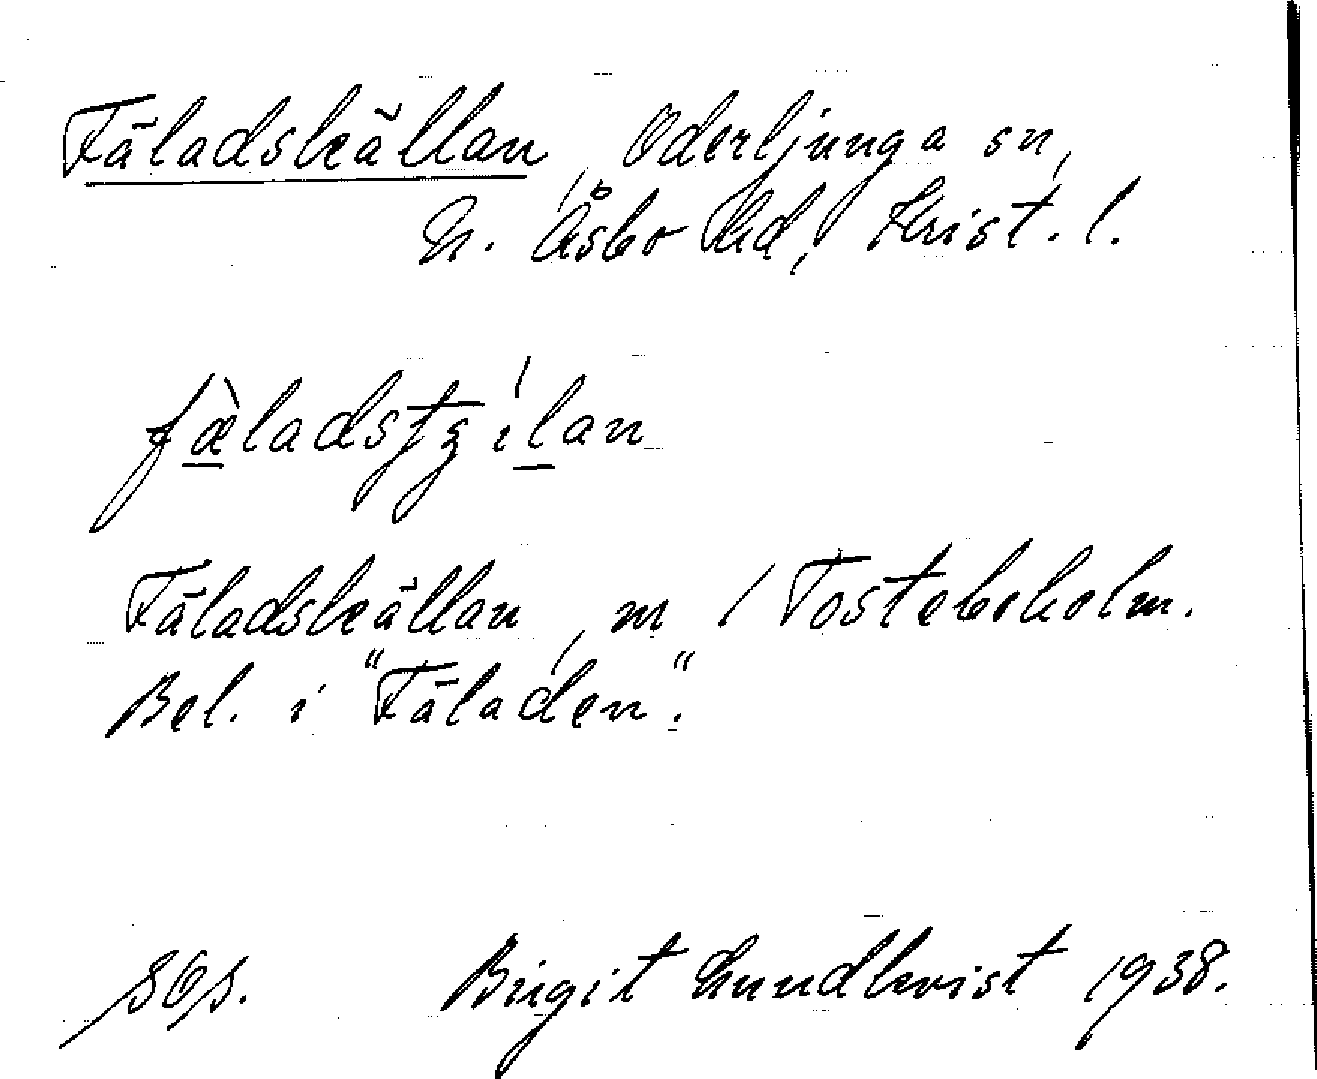 Fäladskällan, Oderljunga sn,
N. Åsbo hd, Krist. l.
Fäladskällan, m / Tosteboholm.
Bel. i "Fäladen".
Birgit Lundkvist 1938.